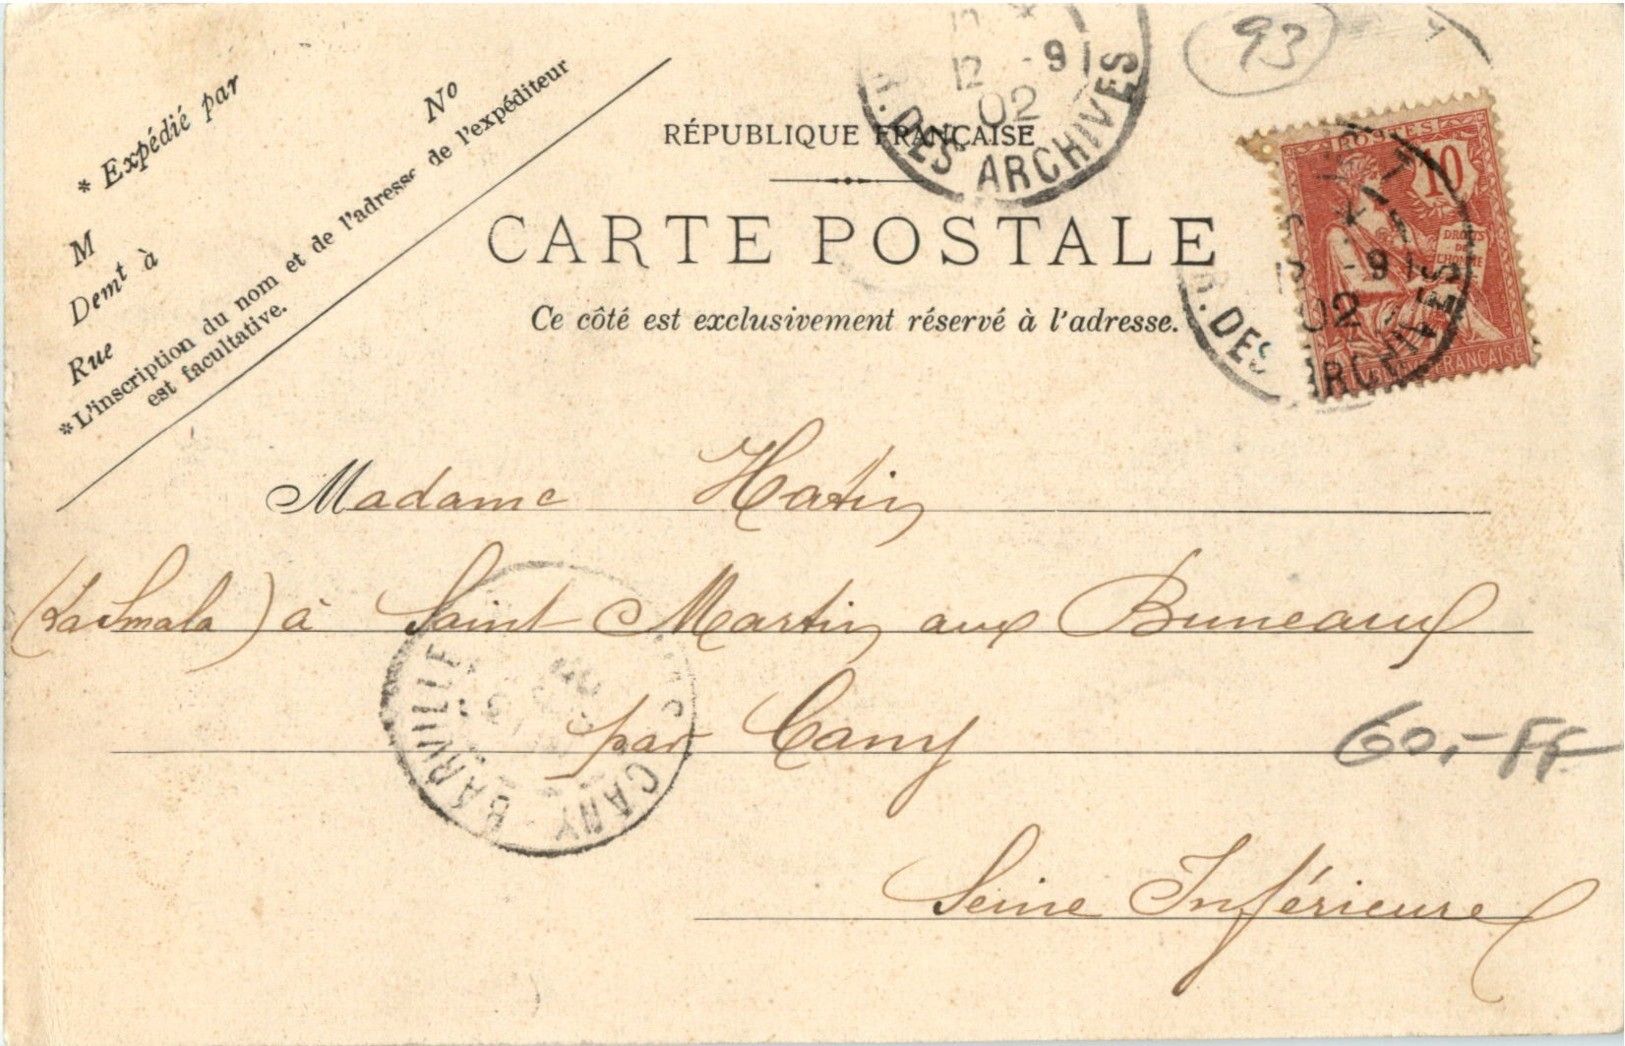 * Expédié par
M
Demt à
Rue
No
* L'inscription du nom et de l'adresse de l'expéditeur
est facultative.
12 -9
02
R. DES ARCHIVES
93
RÉPUBLIQUE FRANÇAISE
CARTE POSTALE
Ce côté est exclusivement réservé à l'adresse.
POSTES
10
DROITS
DE
L'HOMME
-9
02
R. DES ARCHIVES
FRANÇAISE
Madame Hatin
(La Smala) à Saint Martin aux Buneaux
par Cany
60,- FF
Seine Inférieure
CANY - BARVILLE